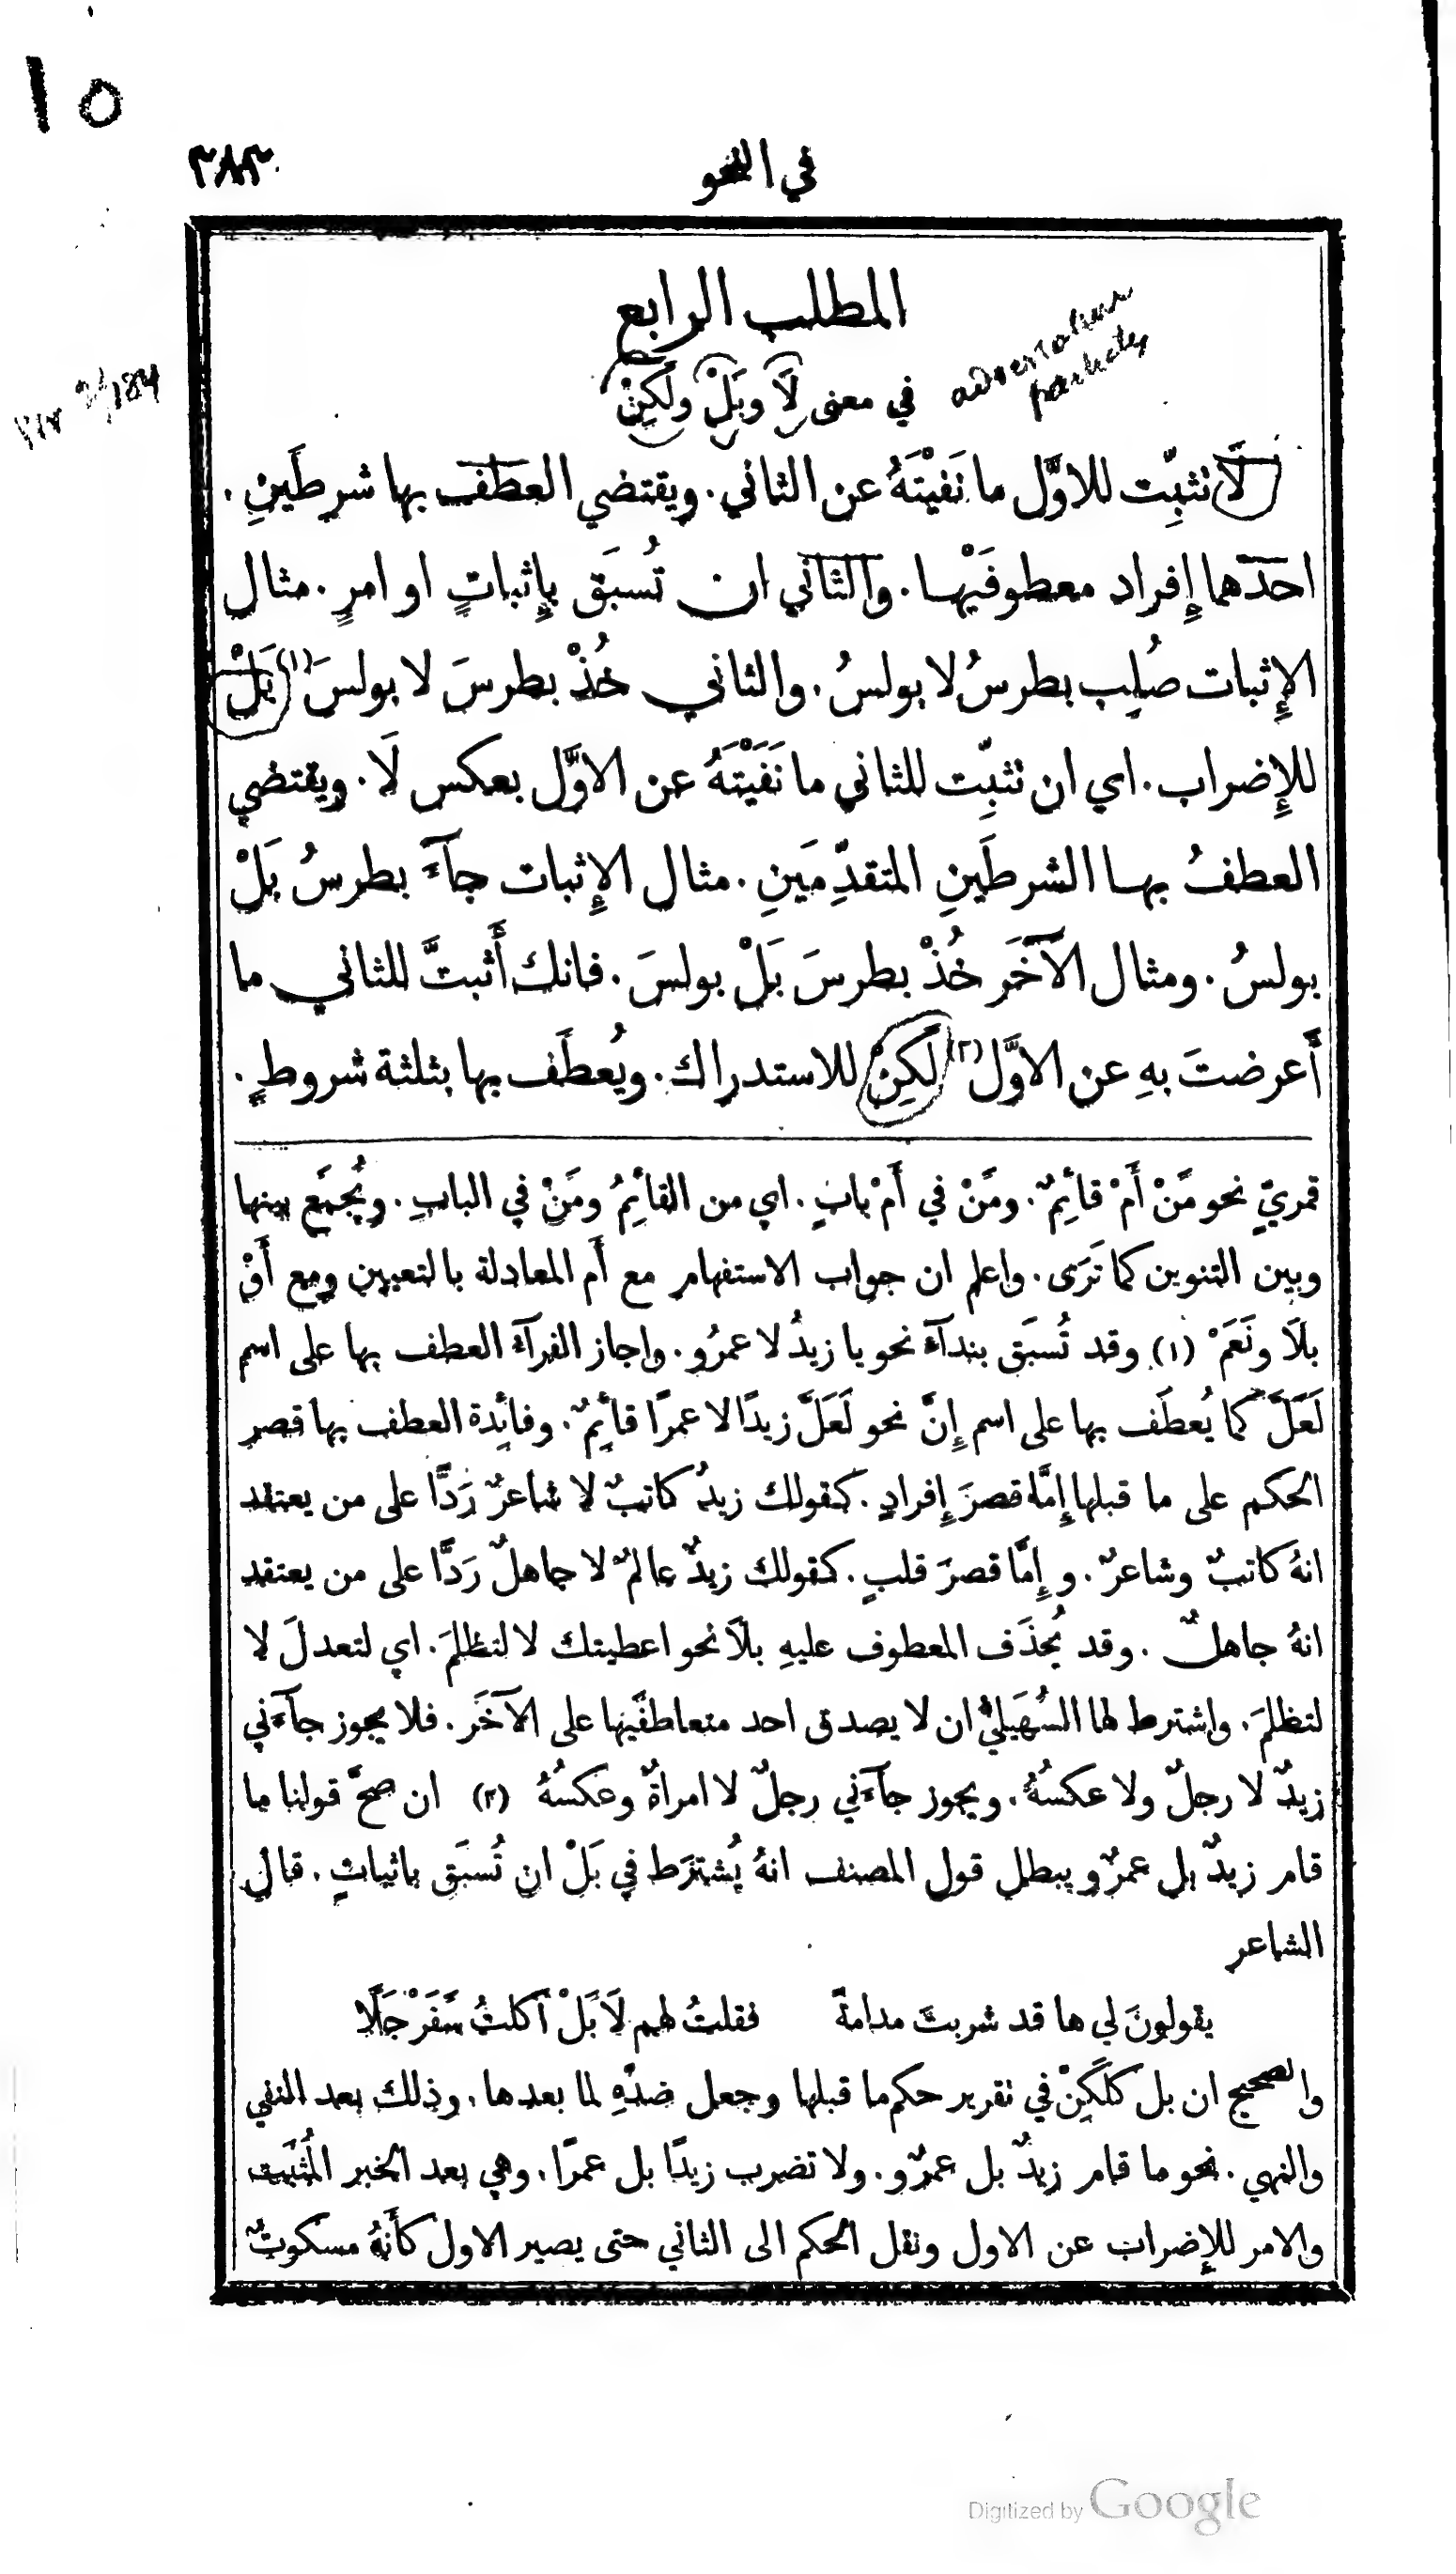 ١٥
في النحو ٣٨٣
المطلب الرابع
adversative
particles
في معنى لَا وبَلْ ولَكِنْ
لَا تثبِّت للاوَّل ما نَفيْتَهُ عن الثاني. ويقتضي العطف بها شرطَينِ.
احدهما إِفراد معطوفَيْها. والثاني ان تُسبَق بإِثباتٍ او امرٍ. مثال
الإِثبات صُلِب بطرسُ لا بولسُ. والثاني خُذْ بطرسَ لا بولسَ (١) بَلْ
للإِضراب. اي ان تثبِّت للثاني ما نَفَيْتَهُ عن الاوَّل بعكس لَا. ويقتضي
العطفُ بها الشرطَينِ المتقدِّمَينِ. مثال الإِثبات جآءَ بطرسُ بَلْ
بولسُ. ومثال الآخَر خُذْ بطرسَ بَلْ بولسَ. فانك أَثبتَّ للثاني ما
أَعرضتَ بهِ عن الاوَّل (٢) لَكِنْ للاستدراك. ويُعطَف بها بثلثة شروطٍ.
قمريّ نحو مَنْ أَمْ قائِمٌ. ومَنْ في أَمْ بابٍ. اي من القائِمُ ومَنْ في البابِ. ويُجمَع بينها
وبين التنوين كما تَرَى. واعلم ان جواب الاستفهام مع أَم المعادلة بالتعيين ومع أَوْ
بلَا ونَعَمْ (١) وقد تُسبَق بندآءَ نحو يا زيدُ لا عمرُو. واجاز الفرآءَ العطف بها على اسم
لَعَلَّ كما يُعطَف بها على اسم إِنَّ نحو لَعَلَّ زيدًا لا عمرًا قائِمٌ. وفائِدة العطف بها قصر
الحكم على ما قبلها إِمَّا قصرَ إِفرادٍ. كقولك زيدٌ كاتبٌ لا شاعرٌ رَدًّا على من يعتقد
انهُ كاتبٌ وشاعرٌ. وإِمَّا قصرَ قلبٍ. كقولك زيدٌ عالمٌ لا جاهلٌ رَدًّا على من يعتقد
انهُ جاهلٌ. وقد يُحذَف المعطوف عليهِ بلَا نحو اعطيتك لا لتظلمَ. اي لتعدلَ لا
لتظلمَ. واشترط لها السُهَيليُّ ان لا يصدق احد متعاطفَيها على الآخَر. فلا يجوز جآءَني
زيدٌ لا رجلٌ ولا عكسُهُ. ويجوز جآءَني رجلٌ لا امراةٌ وعكسُهُ (٢) ان صحَّ قولنا ما
قام زيدٌ بل عمرٌو يبطل قول المصنف انهُ يُشترَط في بَلْ ان تُسبَق باثباتٍ. قال
الشاعر
يقولونَ لي ها قد شربتَ مدامةً فقلتُ لهم لَا بَلْ اكلتُ سَفَرْجَلًا
والصحيح ان بل كلَكِنْ في تقرير حكم ما قبلها وجعل ضدّهِ لما بعدها. وذلك بعد النفي
والنهي. نحو ما قام زيدٌ بل عمرٌو. ولا تضرب زيدًا بل عمرًا. وهي بعد الخبر المُثبَت
والامر للإِضراب عن الاول ونقل الحكم الى الثاني حتى يصير الاول كأَنهُ مسكوتٌ
Digitized by Google